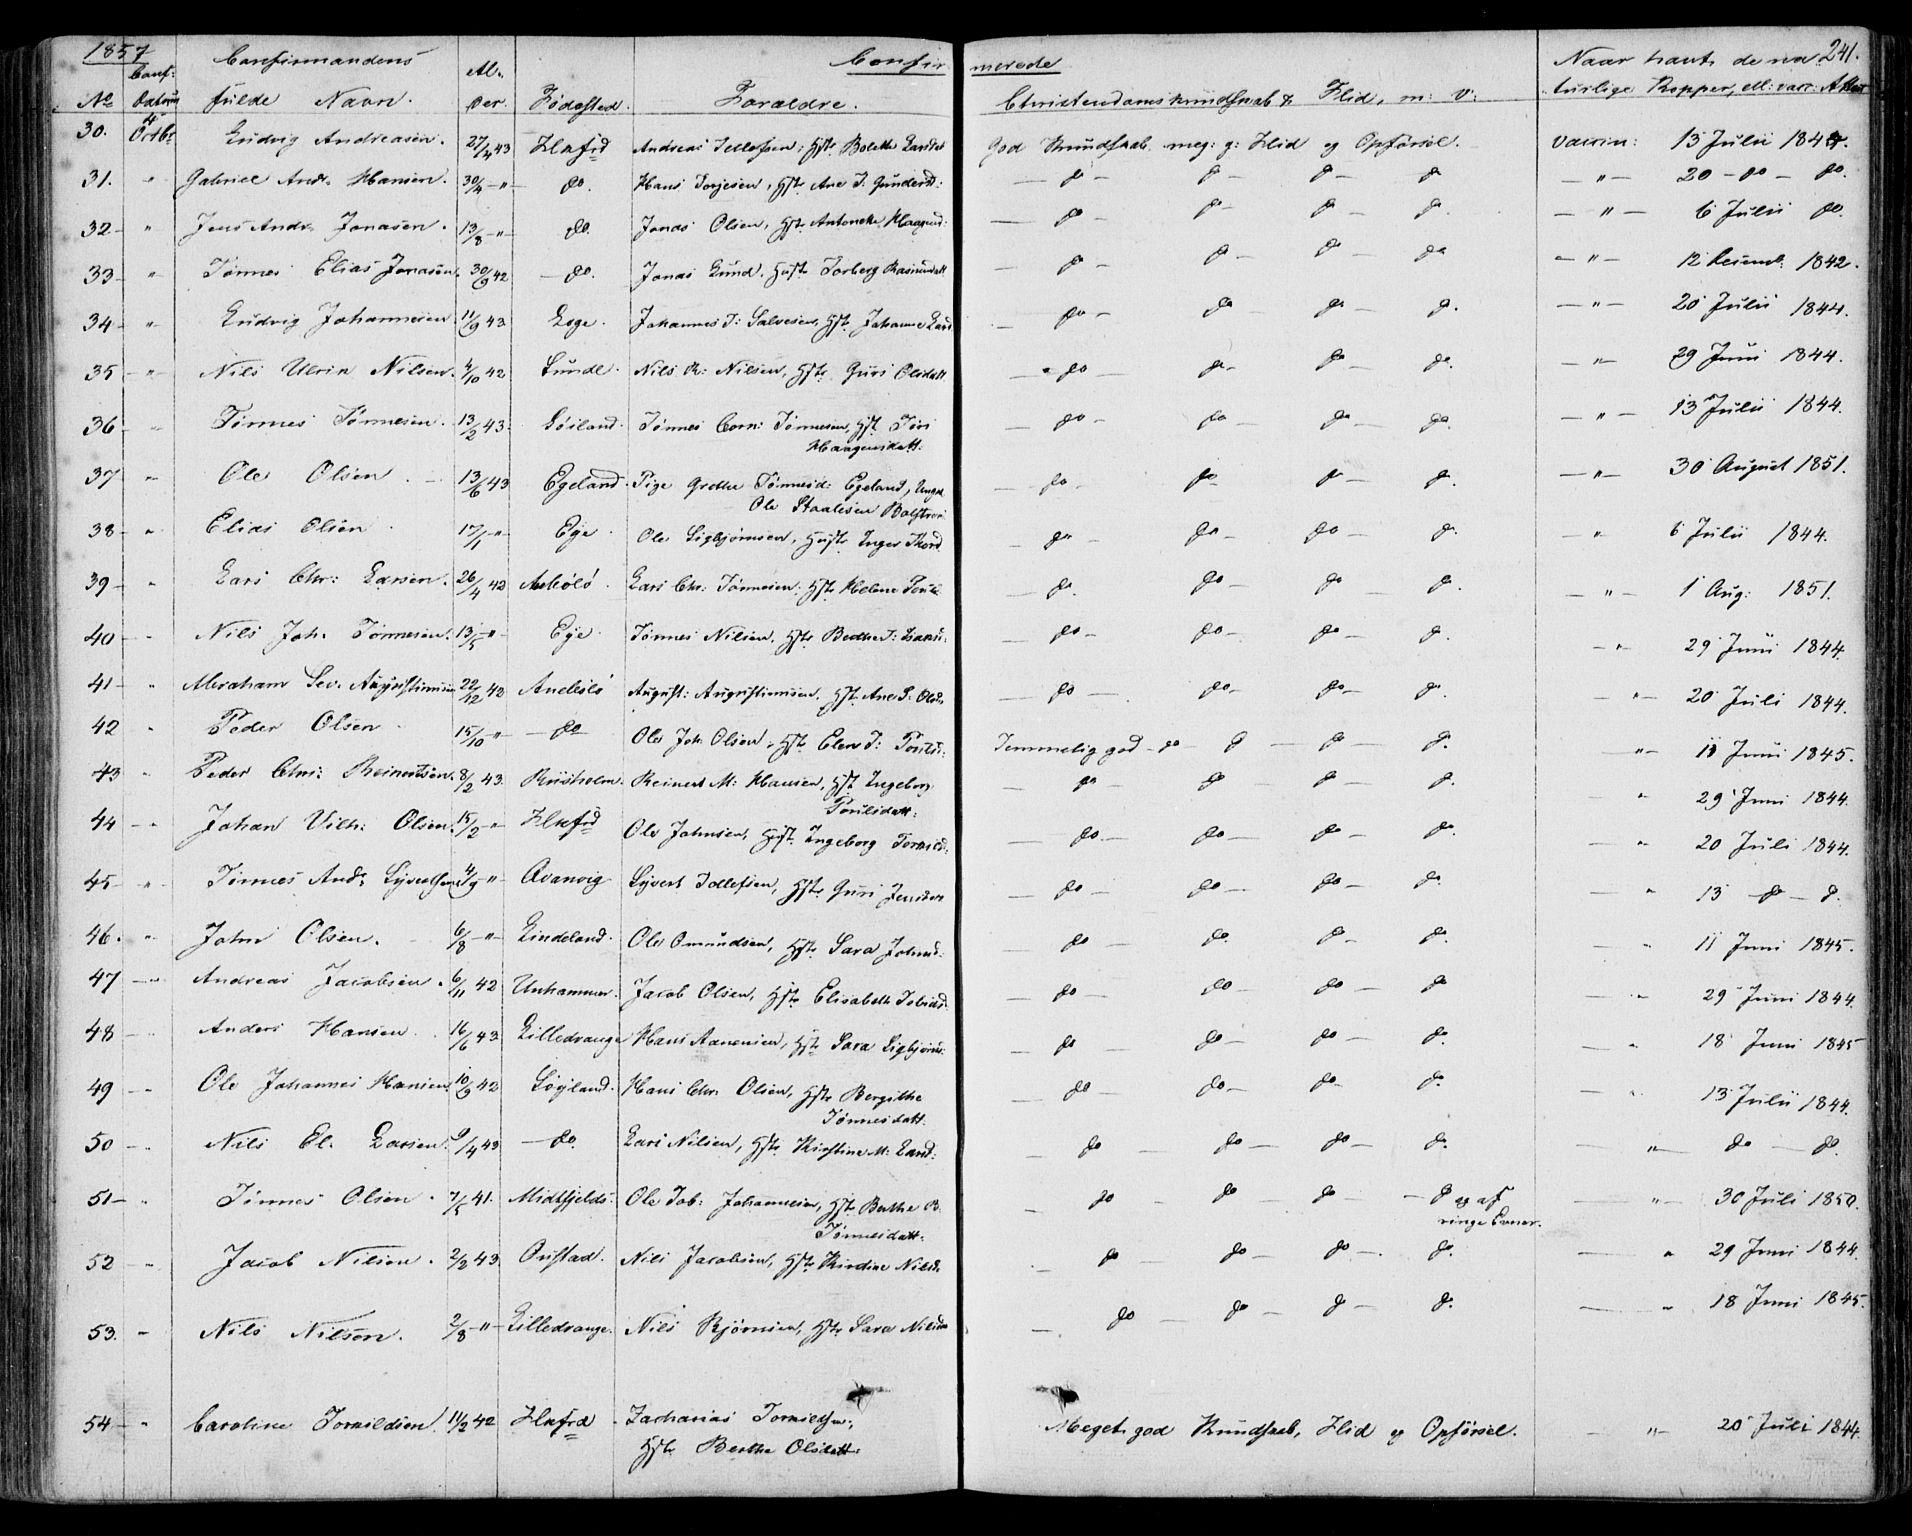 1857 Confirmerede 241.
No Conf: Datum Confirmandens fulde Navn. Alder. Fødested. Forældre. Christendomskundskab & Flid, m: v: Naar havt de naturlige Kopper, ell: vacc: Attest
30. 4 Octbr Ludvig Andreasen. 27/4 43 Flkfrd Andreas Tellefsen, Hstr Bolethe Larsdat God Kundskab meg: g: Flid og Opførsel. vaccin: 13 Julii 1844.
31. " Gabriel Andr. Hansen. 30/4 — " do. Hans Torjesen, Hstr Ane T. Gundersd: — do — do — do — do — " — 20 — do — do.
32 — " Jens Andr. Jonasen. 13/8 — " do. Jonas Olsen, Hstr Antonette Haagensd: — do — do — do — do. — " — 6 Julii do.
33 — " Tønnes Elias Jonasen. 30/9 42 — do. Jonas Lund, Hustr Torberg Rasmusdatt — do — do — do — do — " — 12 Decemb. 1842.
34 — " Ludvig Johannesen 11/9 43 Ege. Johannes T: Salvesen, Hstr Johanne Lars — do — do — do — do. — " — 20 Julii 1844.
35 — " Nils Ulrik Nilsen. 4/10 42 Lunde. Nils R: Nilsen, Hstr Guri Olsdatt. — do — do — do — do. — " — 29 Juni 1844.
36 — " Tønnes Tønnesen. 13/2 43. Løiland. Tønnes Corn: Tønnesen, Hstr Tøri — do — do — do — do. — " — 13 Julii 1844.
Haagensdatt.
37 " Ole Olsen. 13/6 43 Egeland. Pige Grethe Tønnesd: Egeland, Ungk. — do — do — do — do. — " — 30 August 1851.
Ole Staalesen
38 — " Elias Olsen 17/1 — " Ege. Ole Sigbjørnsen, Hustr Inger — do — do — do — do. — " 6 Julii 1844.
39 — " Lars Chr: Larsen. 26/4 42 Lars Chr: Tønnesen, Hstr Helene — do. do — do — do — " — 1 Aug: 1851.
40 — " Nils Joh. Tønnesen. 13/5 " Ege. Tønnes Nilsen, Hstr Berthe T: — do — do — do — do. — " — 29 Juni 1844.
41 — " Abraham Sev. Augustinusen 22/12 42 August: Augustinusen, Hstr Ane S. Olsd. — do — do — do — do. — " — 20 Juli 1844.
42 " Peder Olsen 15/10 " — do Ole Joh. Olsen, Hstr Elen T: Temmelig god — do — do — do — do. " — 11 Juni 1845.
43 " Peder Chr: Reinertsen. 8/2 43. Riisholm. Reinert M: Hansen, Hstr Ingeborg — do — do — do — do. " 29 Juni 1844.
Poulsdatt.
44 — " Johan Vilh: Olsen. 15/2 " Flkfrd Ole Johnsen, Hustr Ingeborg — do — do — do — do. " 20 Juli 1844.
45 — " Tønnes Andr. Syvertsen 4/9 " Syvert Tollefsen, Hstr Guri — do — do — do — do. — " 13 — do — do.
46. " John Olsen. 6/8 — " Lindeland. Ole Omundsen, Hstr Sara Johnsd: — do — do. do — do. — " 11 Juni 1845.
47 — " Andreas Jacobsen. 6/11 42 Unhammer. Jacob Olsen, Hstr Elisabeth Tobiasd. — do — do — do — do — " 29 Juni 1844.
48 — " Anders Hansen. 16/6 43 Lilledrange Hans Aanensen, Hstr Sara — do — do — do — do. — " 18 Juni 1845
49 — " Ole Johannes Hansen 10/9 42 Løyland. Hans Chr. Olsen, Hstr Bergithe — do — do — do — do. — " 13 Julii 1844.
Tønnesdatt.
50 — " Nils El. Larsen. 9/4 43 — do. Lars Nilsen, Hstr Kirstine M: Larsd: — do — do — do — do. — " — do — do.
51 — " Tønnes Olsen. 7/5 41. Midtfjelds. Ole Tob: Johannesen, Hstr Berthe B. — do — do — do — do og af — " — 30 Juli 1850.
Tønnesdatt. ringe Evner.
52 — " Jacob Nilsen. 2/2 43. Nils Jacobsen, Hstr Kirstine Nilsd. — do do — do — do. — " 29 Juni 1844.
53. " Nils Nilsen. 2/8 — " Lilledrange. Nils Bjørnsen, Hstr Sara — do — do — do — do. — " 18 Juni 1845.
54 — " Caroline Torkildsen. 11/2 42 Flkfrd Zacharias Torkildsen, Meget god Kundskab, Flid og Opførsel. — " — 20 Juli 1844.
Hstr Berthe Olsdatt.